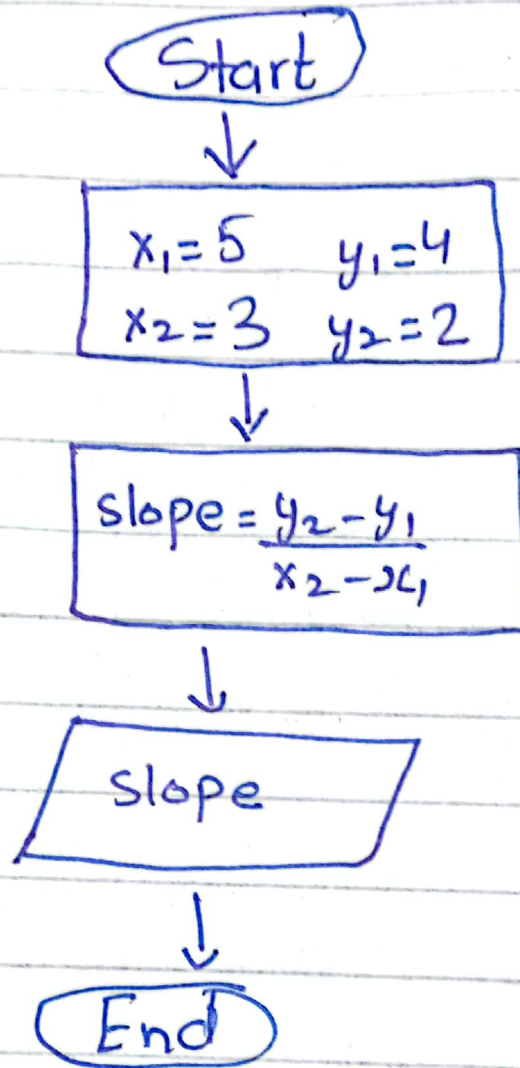 Start
x₁=5 y₁=4
x₂=3 y₂=2
slope = y₂-y₁
x₂-x₁
slope
End